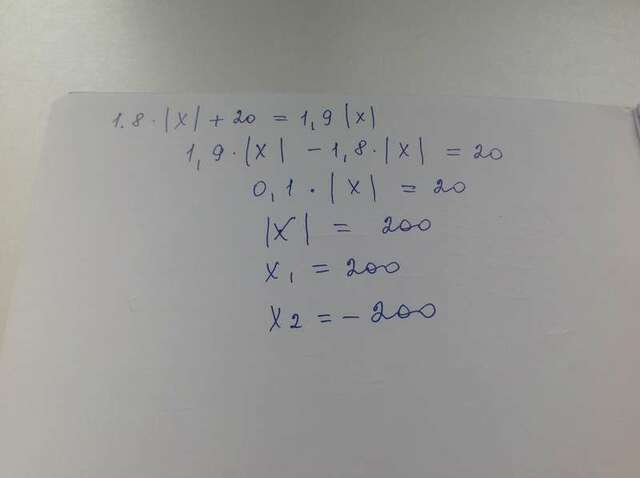 1.8 · |x| + 20 = 1,9 |x|
1,9 · |x| - 1,8 · |x| = 20
0,1 · |x| = 20
|x| = 200
x1 = 200
x2 = - 200